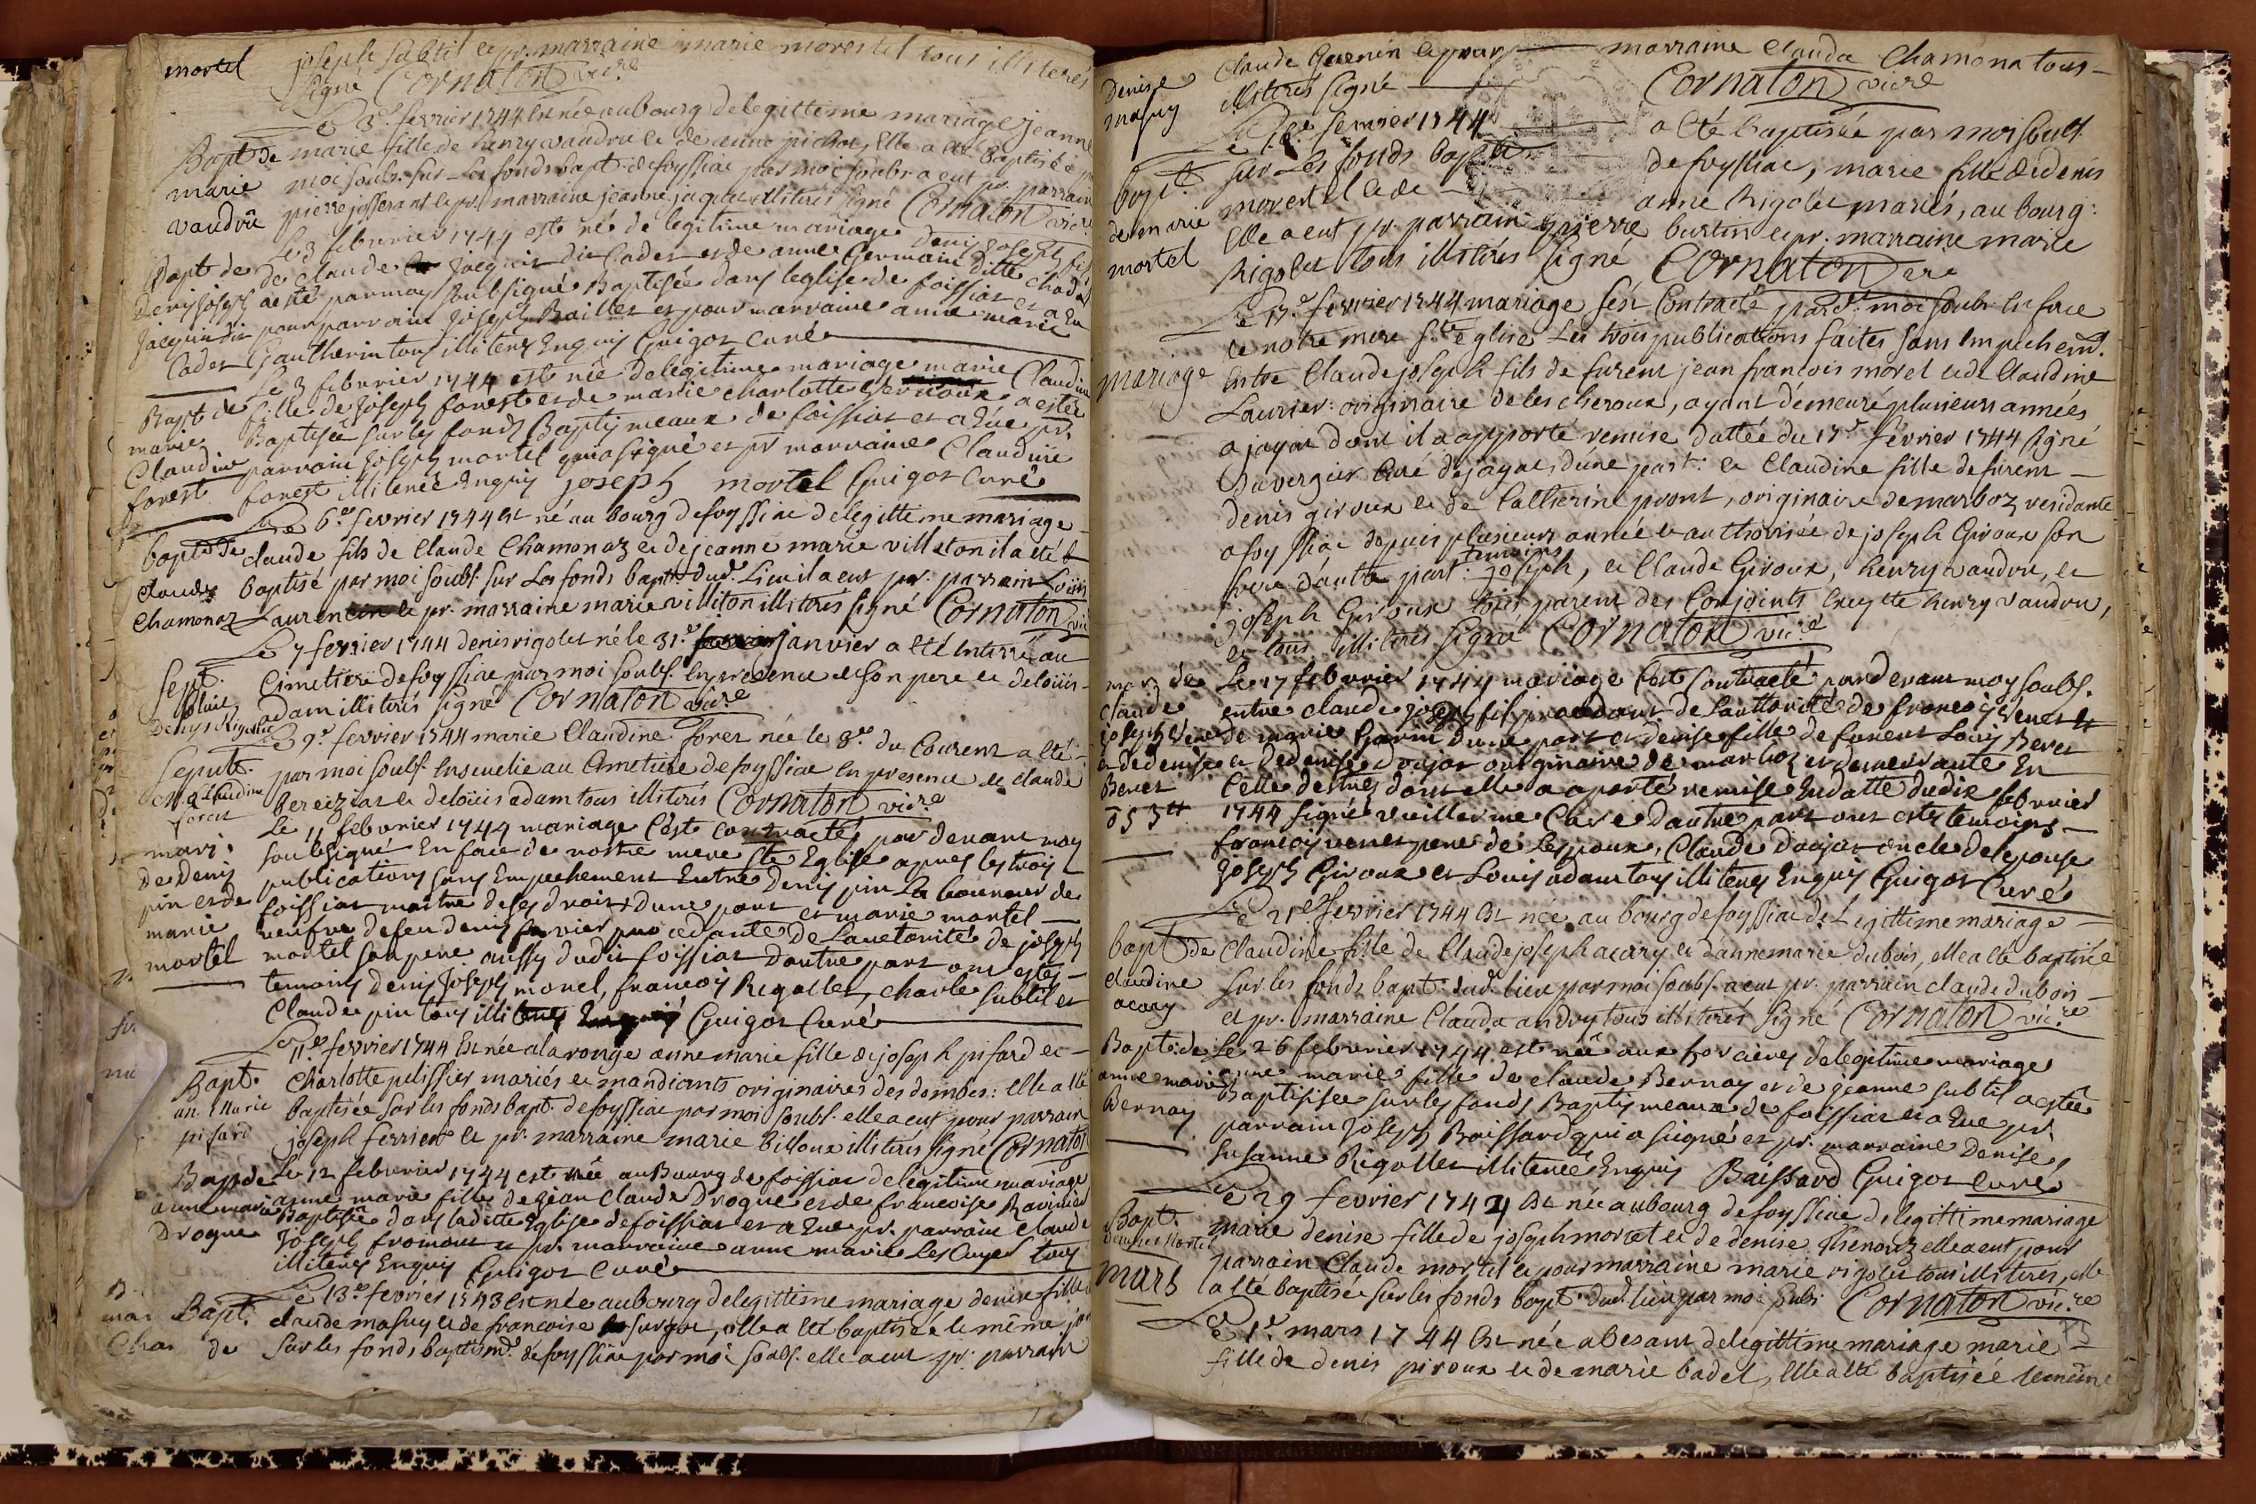 mortel
joseph subtil et pr. marraine marie morestel tous illiterés
signé Cornaton vic.re
Le 3.e fevrier 1744 est née au bourg de legittime mariage jeanne
Bapt. de marie fille de henry vaudru et de anne pichot, elle a été baptisée
marie moi soubs. sur les fonds bapt. de foyssiac par moi soubs. a eut pr. parrain
vaudru pierre josserant et pr. marraine jeanne jaquet illiterés signé Cornaton vicre
Le 3 febvrier 1744 este né de legitime mariage denis joseph fils
Bapt. de de claude Jacquin dit Cadet et de anne Germain ditte chadal
denis joseph a esté par moy soubsigné Baptisée dans leglise de foissiat et a Eu
Jacquin dit pour parrain joseph Baillet et pour marraine anne marie
Cadet Gautherin tous illiterez Enquis Guigot Curé
Le 3 febvrier 1744 este née de legitime mariage marie Claudine
Bapt. de fille de Joseph forest et de marie charlotte a estée
marie Baptisée sur les fonds Baptismeaux de foissiat et a Eue pr.
Claudine parrain Joseph mortel qui a signé et pr marraine Claudine
forest forest illiterée Enquis joseph mortel Guigot Curé
Le 6.e fevrier 1744 est né au bourg de foyssiac de legittime mariage
bapt. de claude fils de Claude Chamonaz et de jeanne marie villeton il a été
claude baptisé par moi soubs. sur les fonds bapt. dud. Lieu il a eut pr. parrain Louis
Chamonaz Laurent et pr. marraine marie villiton illiterés signé Cornaton vic
Le 7 fevrier 1744 denis rigolet né le 31.e janvier a été Enterré au
Sept. Cimetiere de foyssiac par moi soubs. En presence de son pere et de loüis
Denys Rigolet adam illiterés signé Cornaton vicre
Le 9.e fevrier 1744 marie Claudine forez née le 3.e du Courent a été
Sepult. par moi soubs. Ensevelie au Cimetiere de foyssiac En presence de claude
Mie Claudine bereiziat et de loüis adam tous illiterés Cornaton vicre
forest
Le 11 febvrier 1744 mariage Ceste contracté par devant moy
mari. soubsigné En face de nostre mere Ste Eglise apres les trois
de Denis publications sans Empechement Entre Denis pin Laboureur de
pin et de foissiat maitre de ses droits dune part et marie mortel
marie veufve de feu denis procedante de Lauctorité de joseph
mortel mortel son pere aussy dudit foissiat dautre part ont estes
temoins denis Joseph morel, francois Rigollet, charle subtil et
Claude pin tous illiterez Guigot Curé
Le 11.e fevrier 1744 Est née a la rouge anne marie fille de joseph pisard et
Bapt. Charlotte pelissier mariés et mandiants originaires des dombes: Elle a été
an. Marie baptisée sur les fonds bapt. de foyssiac par moi soubs. elle a eut pour parrain
pisard joseph ferrier et pr. marraine marie billoux illiterés signé Cornaton
Bapt. de Le 12 febvrier 1744 est née au Bourg de foissiat de legitime mariage
anne marie anne marie fille de Jean Claude Drogue et de francoise Ravinier
Drogue Baptisée dans laditte Eglise de foissiat et a Eue pr. parrain Claude
Joseph fromont et pr. marraine anne marie Les Cuyer tous
illiterez Enquis Guigot Curé
Le 13.e fevrier 1743 est née au bourg de legittime mariage denise fille
Bapt. claude masuy et de francoise surgot, elle a été baptisée le même jour
de sur les fonds baptism. de foyssiac par moi soubs. elle a eut pr. parrain
denise Claude Guenin et pour marraine Clauda Chamona tous
masuy illiterés signé Cornaton vicre
Le 16.e fevrier 1744 a été baptisée par moi soubs.
bapt. sur Les fonds bapt. de foyssiac, marie fille de denis
de marie morestel et de anne Rigolet mariés, au bourg:
mortel Elle a eut pr. parrain pierre burtin et pr. marraine marie
Rigolet tous illiterés signé Cornaton vicre
Le 17.e fevrier 1744 mariage s'est Contracté pard. moi soubs. En face
de notre mere S.te église Les trois publications faites sans Empechemt.
mariage Entre Claude joseph fils de furent jean francois morel et de Claudine
Laurier: originaire de lescheroux, ayant demeuré plusieurs années
a jayat dont il a apporté remise dattée du 17.e février 1744 signé
Duvergier Curé de jayat, dune part: et Claudine fille de furent
denis giroux et de Catherine pront, originaire de marboz residante
a foyssiac depuis plusieurs année et authorisée de joseph Giroux son
frere d'autre part: temoins joseph, et Claude Giroux, henry vaudru, et
joseph Giroux tous parent des Conjoints Excepté henry vaudru,
et tous illiterés signé Cornaton vicre
mar. de Le 17 febvrier 1744 mariage Cest Contracté pardevant moy soubs.
Claude entre claude joseph fils procedant de Lauthorité de francois venet et
joseph venet de marie Garin dune part et denise fille de furent Louis Bevet
et de denise et de denise doujat originaire de marboz et demeurante En
Bevet Celle detres dont elle a aporté remise En datte dudix febvrier
1744 signé vuillerme Curé Dautre part ont estes temoins
francois venet pere de Lepoux, Claude Doujat oncle de lepouse
Joseph Giroux et Louis adam tous illiterez Enquis Guigot Curé
Le 21.e fevrier 1744 Est née au bourg de foyssiac de Legittime mariage
bapt. de Claudine fille de Claude joseph acary et danne marie dubois, elle a été baptisée
claudine sur les fonds bapt. dud. lieu par moi soubs. a eut pr. parrain claude dubois
acary et pr. marraine Clauda andry tous illiterés signé Cornaton vic.re
Bapt. de Le 26 febvrier 1744 est née aux foraines de legitime mariage
anne marie anne marie fille de claude Bernay et de jeanne subtil a estée
Bernay Baptisée sur les fonds Baptismeaux de foissiat et a Eue pr.
parrain joseph Boissard qui a signé et pr. marraine Denise
susanne Rigollet illiterée Enquis Baissard Guigot Curé
Le 29 fevrier 1744 Est née au bourg de foyssiac de legittime mariage
Bapt. marie denise fille de joseph mortel et de denise thenoz elle a eut pour
Denise Mortel parrain Claude mortel et pour marraine marie rigolet tous illiterés, elle
mars a été baptisée sur les fonds bapt. dud. lieu par moi subs. Cornaton vic.re
Le 1.er mars 1744 Est née a besant de legittime mariage marie
fille de denis piroux et de marie badel, Elle a été baptisée le même
73